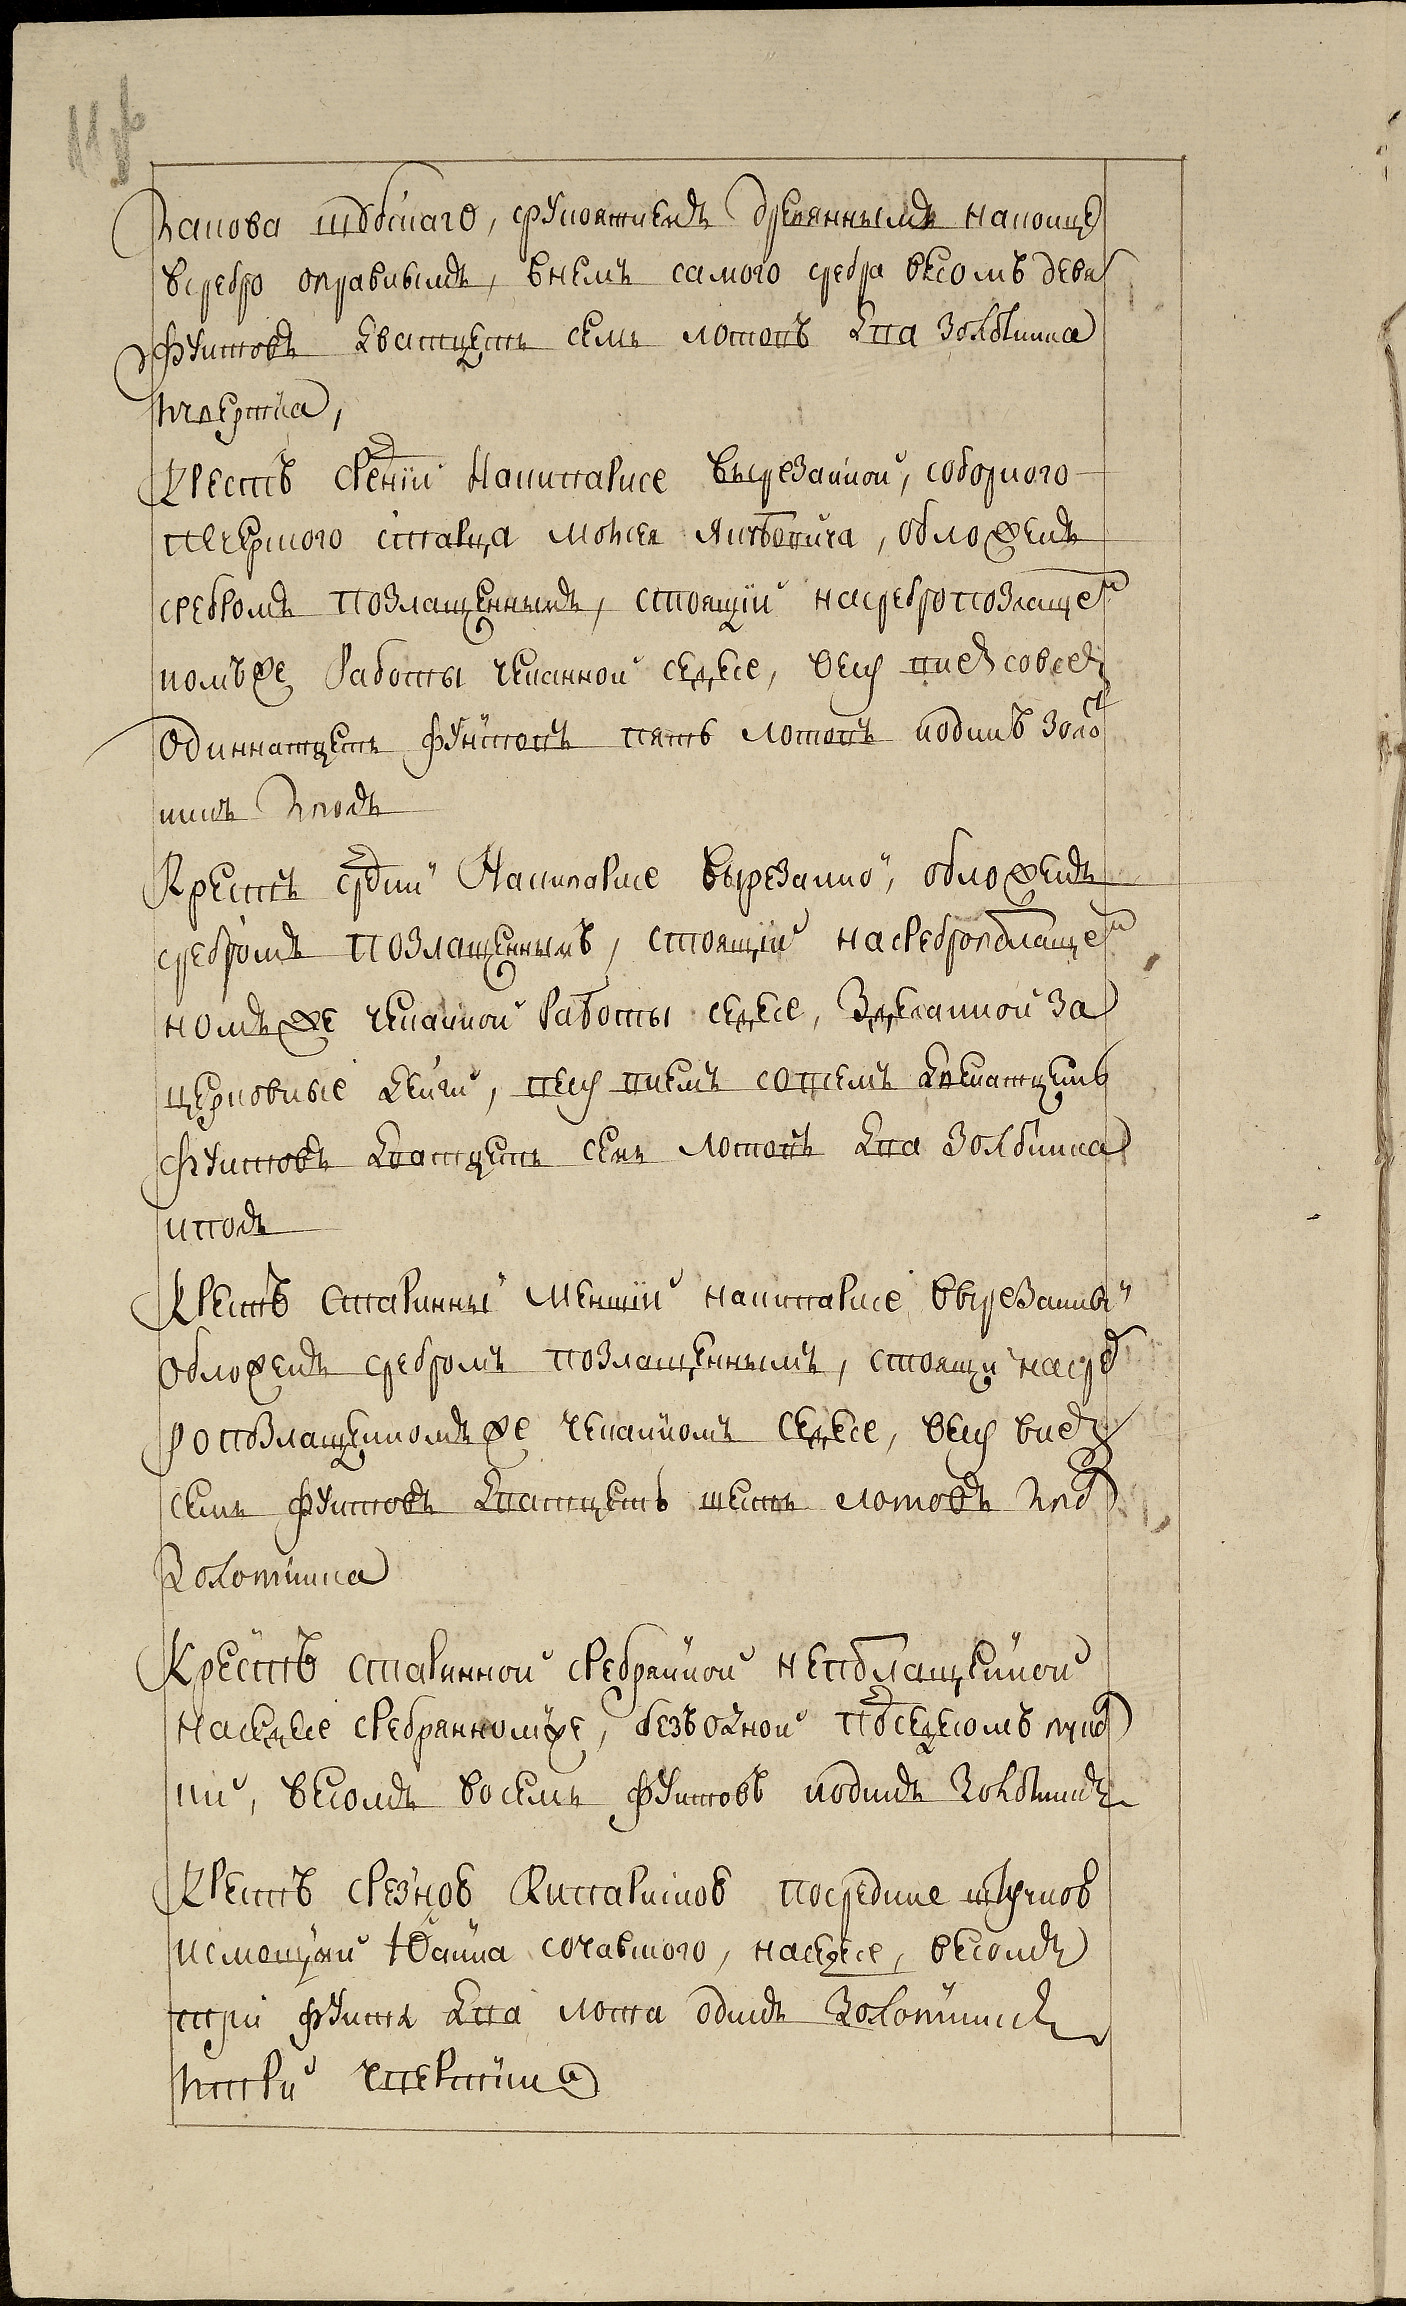 сребро оправнымъ, внемъ самого сребра весомъ деви
фунтовъ дватцеть семь лотовъ два золотника
ичвертка,
Крестъ средній Накипарисе вырезанной, соборного
печерского старца Моисея Якубовича, обложенъ
сребромъ позлащеннымъ, стоящій насребропозлаще
номъже работы чеканной седесе, весу внем совсем
одиннатцеть фунтовъ пять лотовъ иодинъ золо
никъ иполъ
Крестъ средний Накипарисе вырезанной, обложенъ
сребромъ позлащеннымъ, стоящій насребропозлаще
номъже чеканной работы седесе, зделанной за
церковные денги, весу внемъ совсемъ
фунтовъ дватцеть семь лотовъ два золотника
иполъ
Крестъ старинный менший накипарисе вырезанный
обложенъ сребромъ позлащеннымъ, стоящий насреб
ропозлащенномъже чеканномъ седесе, весу внем
семь фунтовъ дватцеть шесть лотовъ ипол
золотника
Крестъ старинной сребраной непозлащенной
Наседесе сребранномже, подседесомъ
весомъ восемь фунтовъ иодинъ золотникъ
Крестъ срезнов кипариснов посредине
Иоанна сочавского, наседесе, весомъ
три фунта два лота одинъ золотник
итри чвертки